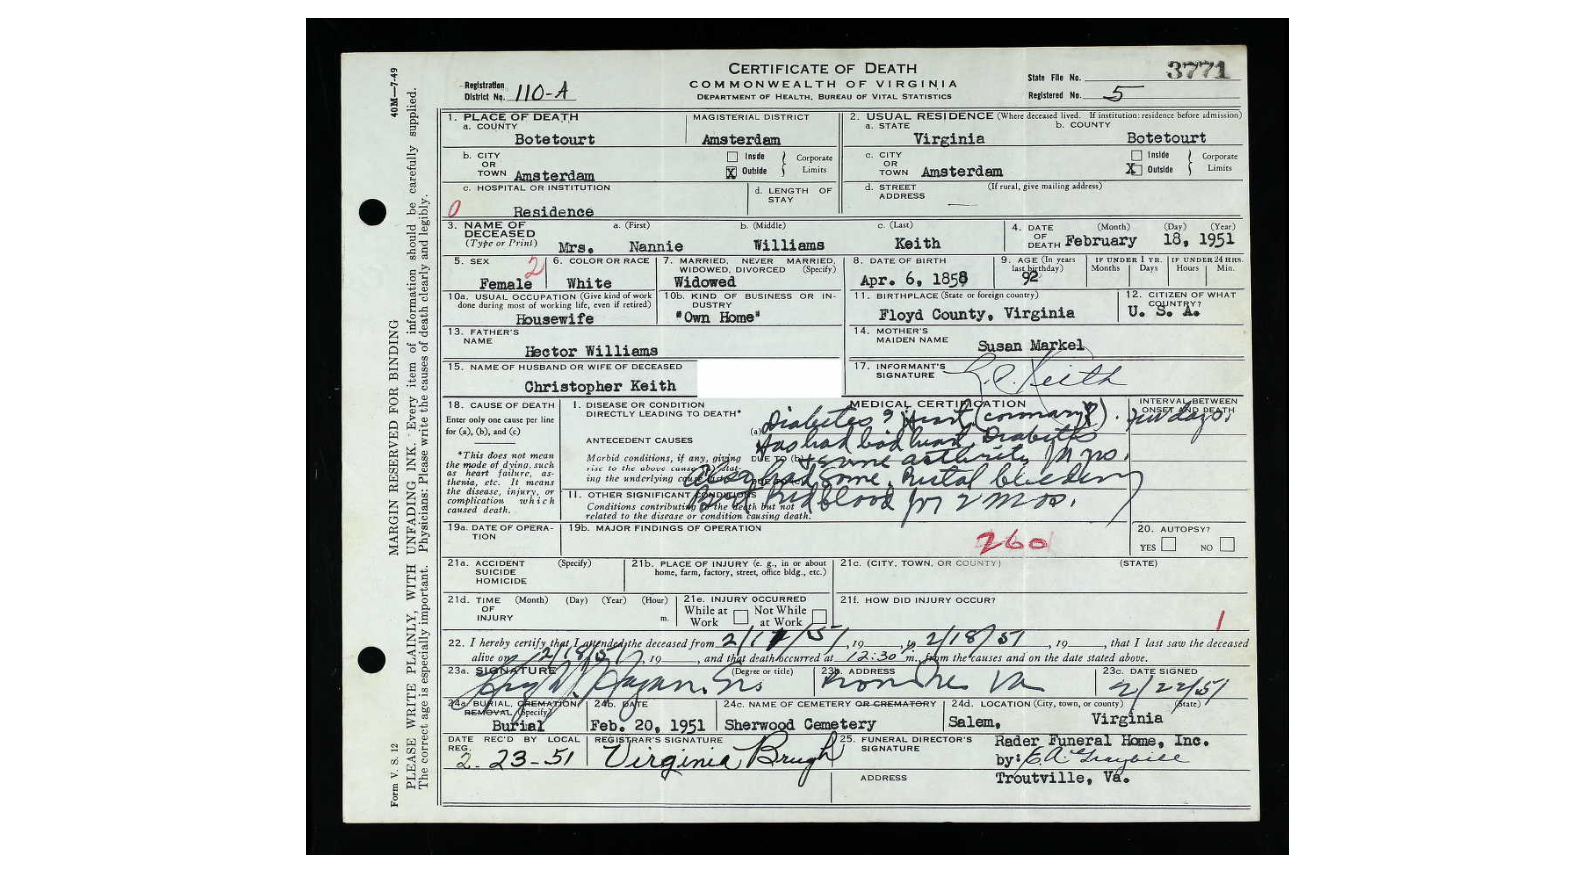 CERTIFICATE OF DEATH
COMMONWEALTH OF VIRGINIA
DEPARTMENT OF HEALTH, BUREAU OF VITAL STATISTICS
Registration District No. 110-A
State File No. 3771
Registered No. 5
1. PLACE OF DEATH
a. COUNTY Botetourt
MAGISTERIAL DISTRICT Amsterdam
b. CITY OR TOWN Amsterdam
Inside
X Outside
Corporate Limits
c. HOSPITAL OR INSTITUTION
0 Residence
d. LENGTH OF STAY
2. USUAL RESIDENCE (Where deceased lived. If institution: residence before admission)
a. STATE Virginia
b. COUNTY Botetourt
c. CITY OR TOWN Amsterdam
Inside
X Outside
Corporate Limits
d. STREET ADDRESS (If rural, give mailing address)
3. NAME OF DECEASED (Type or Print)
a. (First) b. (Middle) c. (Last)
Mrs. Nannie Williams Keith
4. DATE OF DEATH (Month) (Day) (Year)
February 18, 1951
5. SEX 2 Female
6. COLOR OR RACE White
7. MARRIED, NEVER MARRIED, WIDOWED, DIVORCED (Specify) Widowed
8. DATE OF BIRTH Apr. 6, 1858
9. AGE (In years last birthday) 92
IF UNDER 1 YR. Months Days
IF UNDER 24 HRS. Hours Min.
10a. USUAL OCCUPATION (Give kind of work done during most of working life, even if retired) Housewife
10b. KIND OF BUSINESS OR INDUSTRY "Own Home"
11. BIRTHPLACE (State or foreign country) Floyd County, Virginia
12. CITIZEN OF WHAT COUNTRY? U. S. A.
13. FATHER'S NAME Hector Williams
14. MOTHER'S MAIDEN NAME Susan Markel
15. NAME OF HUSBAND OR WIFE OF DECEASED Christopher Keith
17. INFORMANT'S SIGNATURE Keith
18. CAUSE OF DEATH
Enter only one cause per line for (a), (b), and (c)
*This does not mean the mode of dying, such as heart failure, asthenia, etc. It means the disease, injury, or complication which caused death.
MEDICAL CERTIFICATION
I. DISEASE OR CONDITION DIRECTLY LEADING TO DEATH*
(a) Diabetes ? Heart (coronary?).
INTERVAL BETWEEN ONSET AND DEATH
few days.
ANTECEDENT CAUSES
Has had bad heart, Diabetes
Morbid conditions, if any, giving rise to the above cause
the underlying
DUE TO (b)
& some arthritis for yrs.
Also had some Rectal bleeding
II. OTHER SIGNIFICANT CONDITIONS
Conditions contributing to the death but not related to the disease or condition causing death.
blood for 2 mos.
19a. DATE OF OPERATION
19b. MAJOR FINDINGS OF OPERATION
260
20. AUTOPSY?
YES NO
21a. ACCIDENT SUICIDE HOMICIDE (Specify)
21b. PLACE OF INJURY (e. g., in or about home, farm, factory, street, office bldg., etc.)
21c. (CITY, TOWN, OR COUNTY) (STATE)
21d. TIME OF INJURY (Month) (Day) (Year) (Hour) m.
21e. INJURY OCCURRED
While at Work Not While at Work
21f. HOW DID INJURY OCCUR?
1
22. I hereby certify that I attended the deceased from 2/17/51, 19 , to 2/18/51, 19 , that I last saw the deceased
alive on 2/18/51, 19 , and that death occurred at 12:30 m., from the causes and on the date stated above.
23a. SIGNATURE (Degree or title)
23b. ADDRESS Roanoke Va
23c. DATE SIGNED 2/22/51
24a. BURIAL, CREMATION REMOVAL (Specify) Burial
24b. DATE Feb. 20, 1951
24c. NAME OF CEMETERY OR CREMATORY Sherwood Cemetery
24d. LOCATION (City, town, or county) (State)
Salem, Virginia
DATE REC'D BY LOCAL REG. 2-23-51
REGISTRAR'S SIGNATURE Virginia Brugh
25. FUNERAL DIRECTOR'S SIGNATURE
Rader Funeral Home, Inc.
by: E.A. Graybill
ADDRESS Troutville, Va.
40M—7-49
MARGIN RESERVED FOR BINDING
PLEASE WRITE PLAINLY, WITH UNFADING INK. Every item of information should be carefully supplied.
The correct age is especially important. Physicians: Please write the causes of death clearly and legibly.
Form V. S. 12